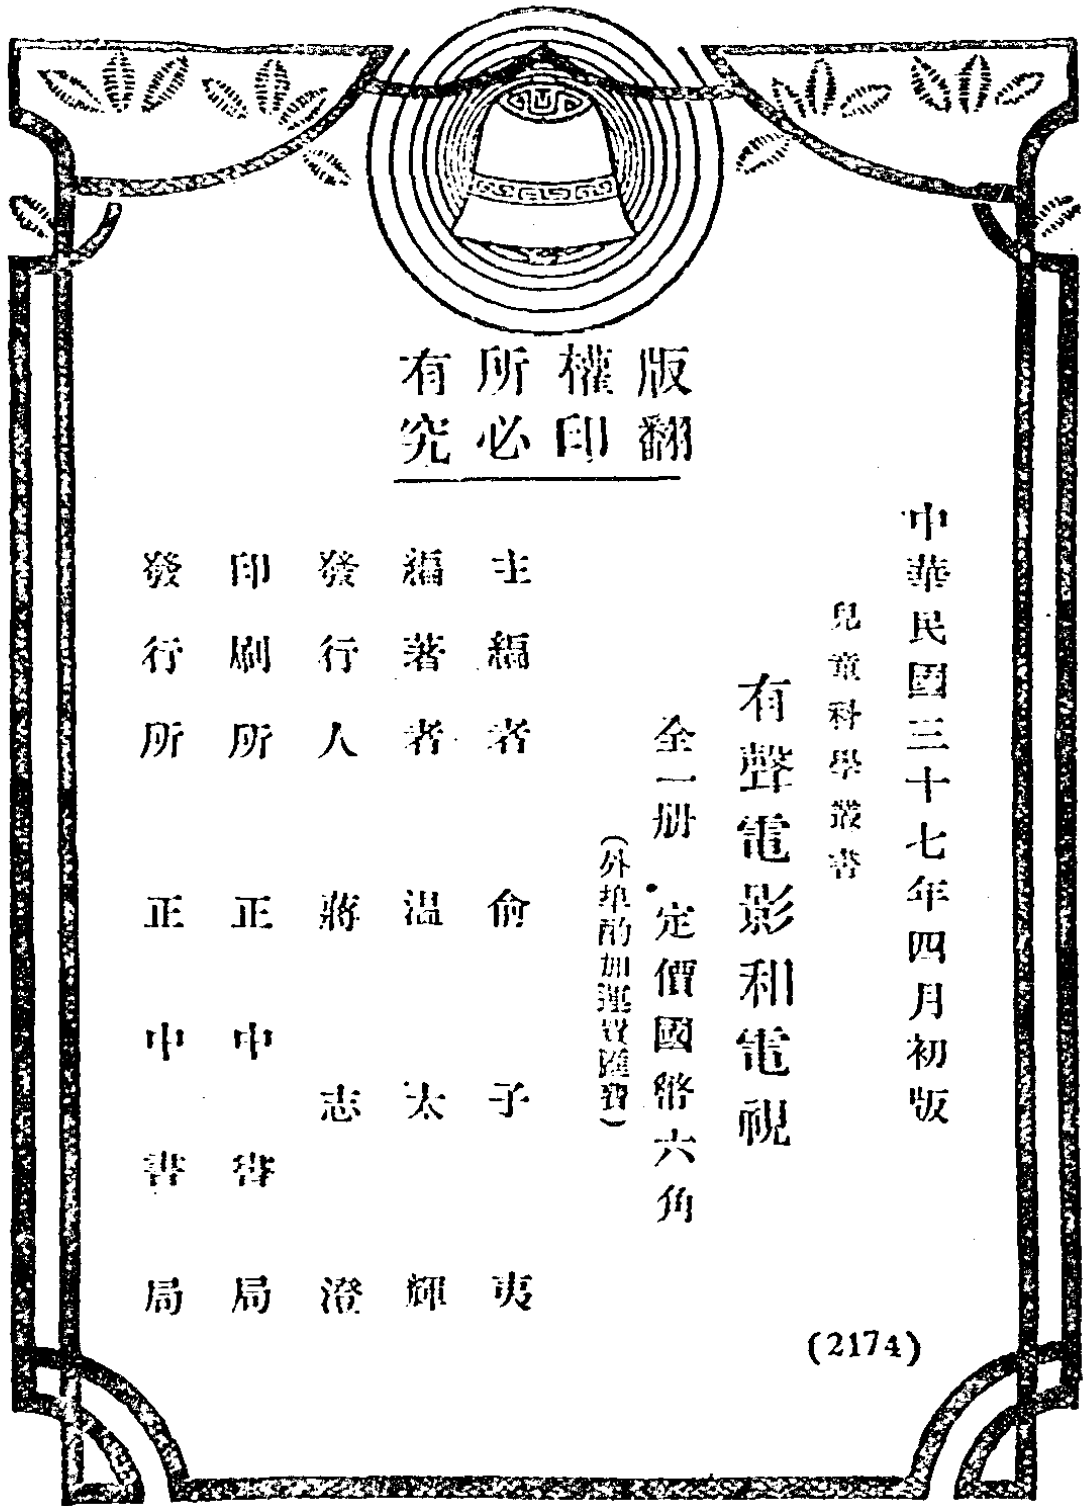 版權所有
翻印必究
中華民國三十七年四月初版
兒童科學叢書
有聲電影和電視
全一册 定價國幣六角
(外埠酌加運費匯費)
主編者 俞子夷
編著者 温太輝
發行人 蔣志澄
印刷所 正中書局
發行所 正中書局
(2174)